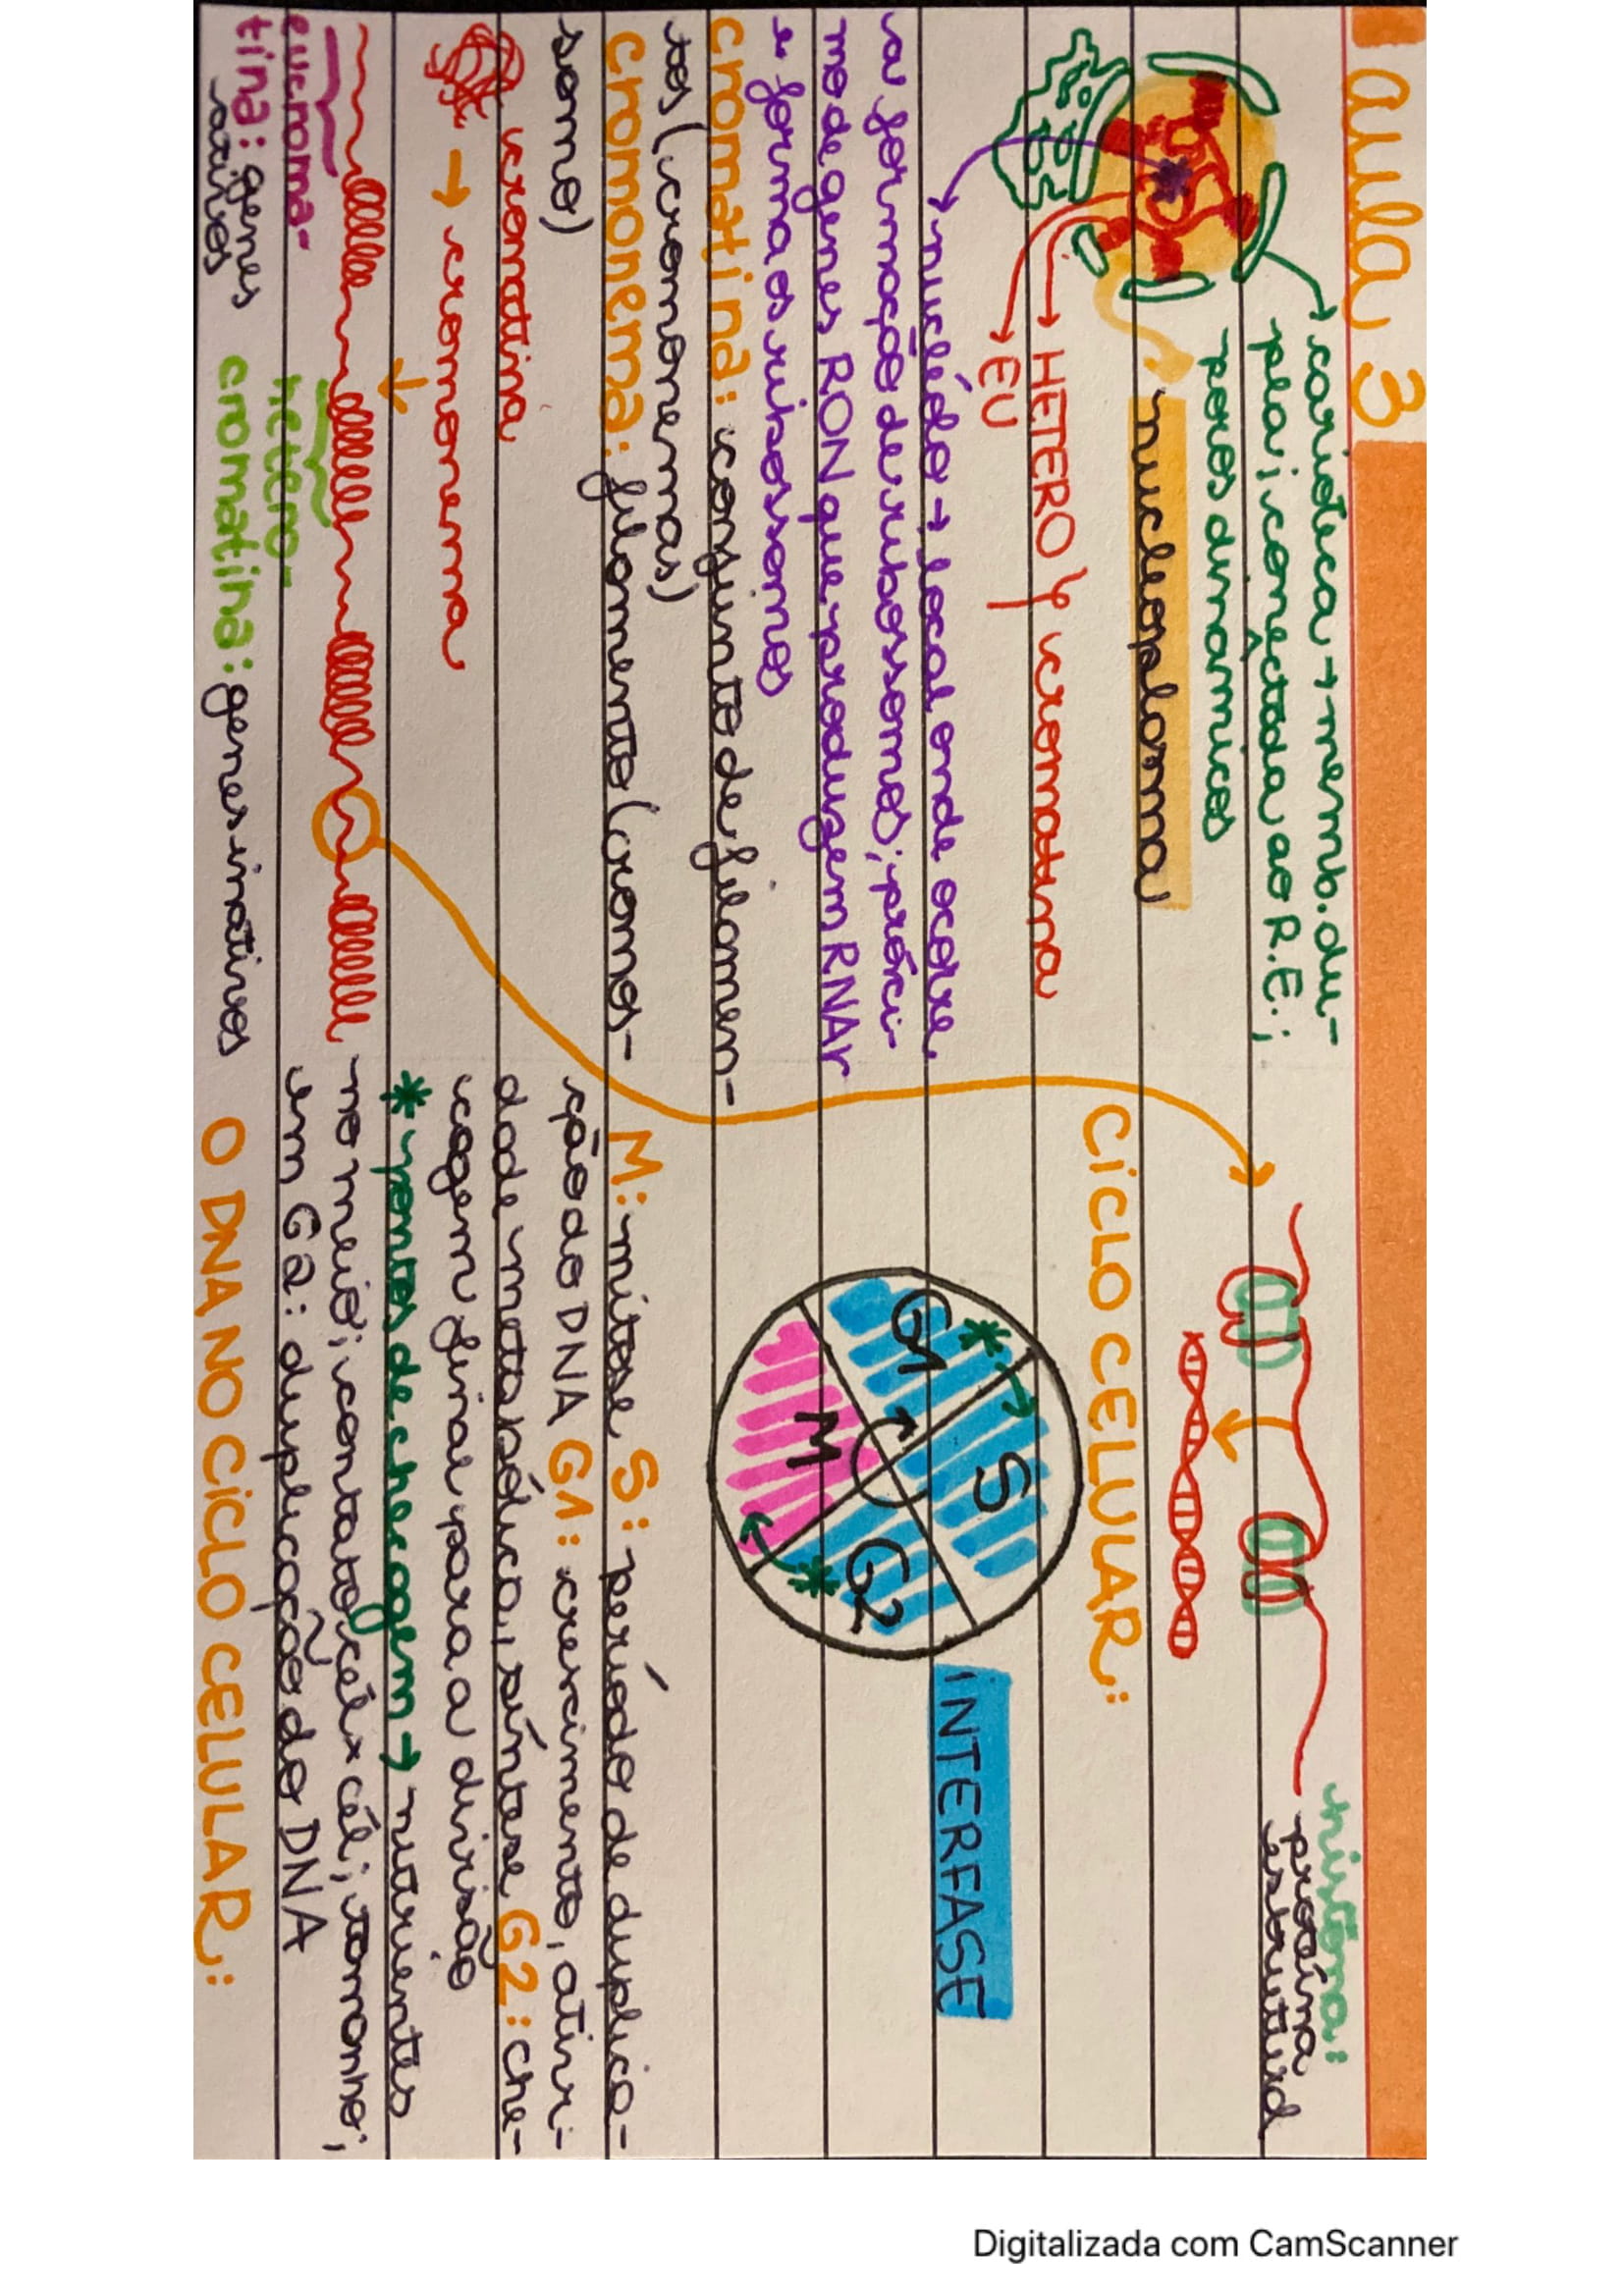 aula 3
carioteca → memb. du-
pla; conectada ao R.E.;
poros dinâmicos
nucleoplasma
HETERO
EU
cromatina
nucléolo → local onde ocorre
a formação de ribossomos; próxi-
mo de genes RON que produzem RNAr
e forma os ribossomos
cromatina: conjunto de filamen-
tos (cromonemas)
cromonema: filamento (cromos-
somo)
cromatina
→ cromonema
eucroma-
tina: genes
ativos
hetero-
cromatina: genes inativos
histona:
proteína
estrutural
CICLO CELULAR:
G1
S
G2
M
INTERFASE
M: mitose S: período de duplica-
ção do DNA G1: crescimento, ativi-
dade metabólica, síntese G2: che-
cagem final para a divisão
* pontos de checagem → nutrientes
no meio; contato cél x cél; tamanho;
em G2: duplicação do DNA
O DNA NO CICLO CELULAR:
Digitalizada com CamScanner